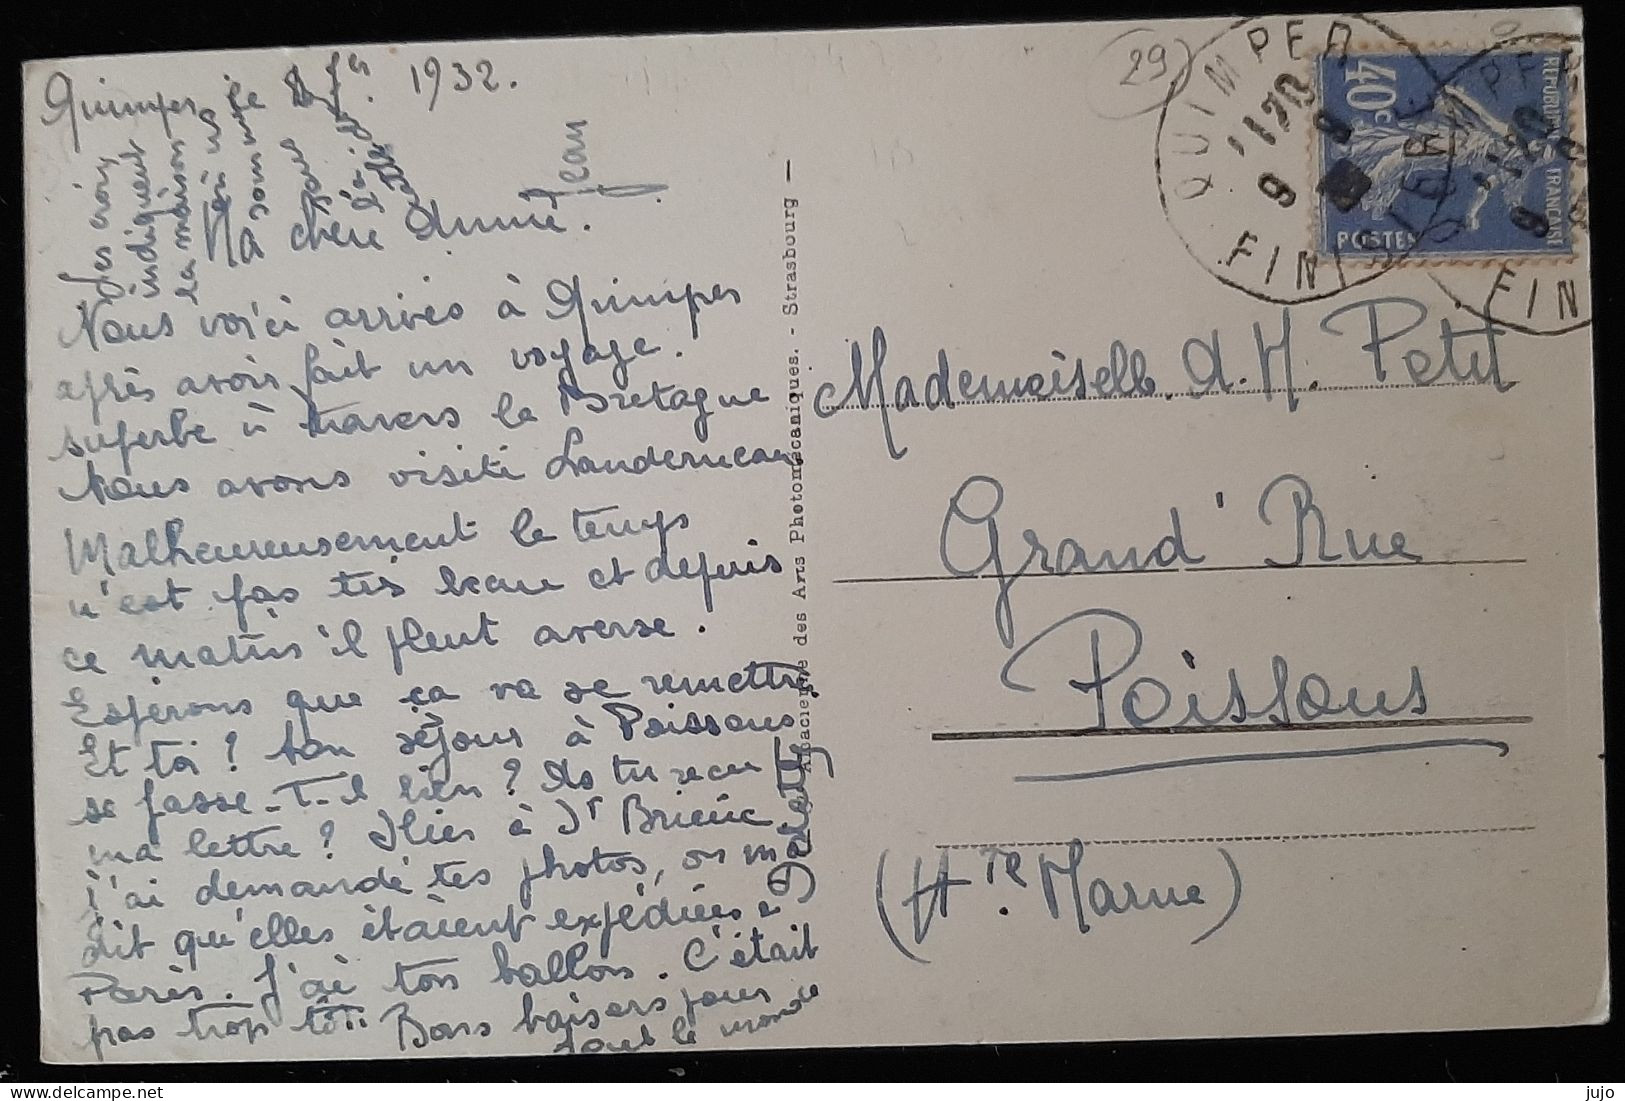 Quimper le 8 7bre 1932.
Les croix
indiquent
la maison
où nous
sommes
Jean
Ma chère Annie.
Nous voici arrivés à Quimper
après avoir fait un voyage
superbe à travers la Bretagne
Nous avons visité Landerneau
Malheureusement le temps
n'est pas très beau et depuis
ce matin il pleut averse.
Espérons que ça va se remettre
Et toi? ton séjour à Poissons
se passe-t-il bien? As tu reçu
ma lettre? Hier à St Brieuc
j'ai demandé tes photos, on m'a
dit qu'elles étaient expédiées à
Paris. J'ai ton ballon. C'était
pas trop tôt. Bons baisers pour
tout le monde
Odette
Alsacienne des Arts Photomécaniques. - Strasbourg —
29
QUIMPER
1170
9
FINISTERE
40c
REPUBLIQUE FRANCAISE
POSTES
Mademoiselle A. M. Petit
Grand' Rue
Poissons
(Hte. Marne)
jujo